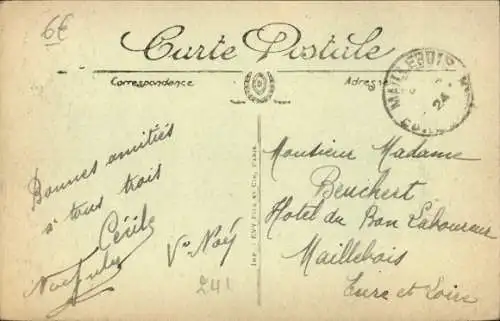 6€
Carte Postale
Correspondance
Adresse
MAILLEBOIS
24
Bonnes amitiés
à tous trois
Cécile
Vve Noël
241
Imp. LEVY Fils et Cie, PARIS
Monsieur Madame
Beuchert
Hotel du Bon Laboureur
Maillebois
Eure et Loir